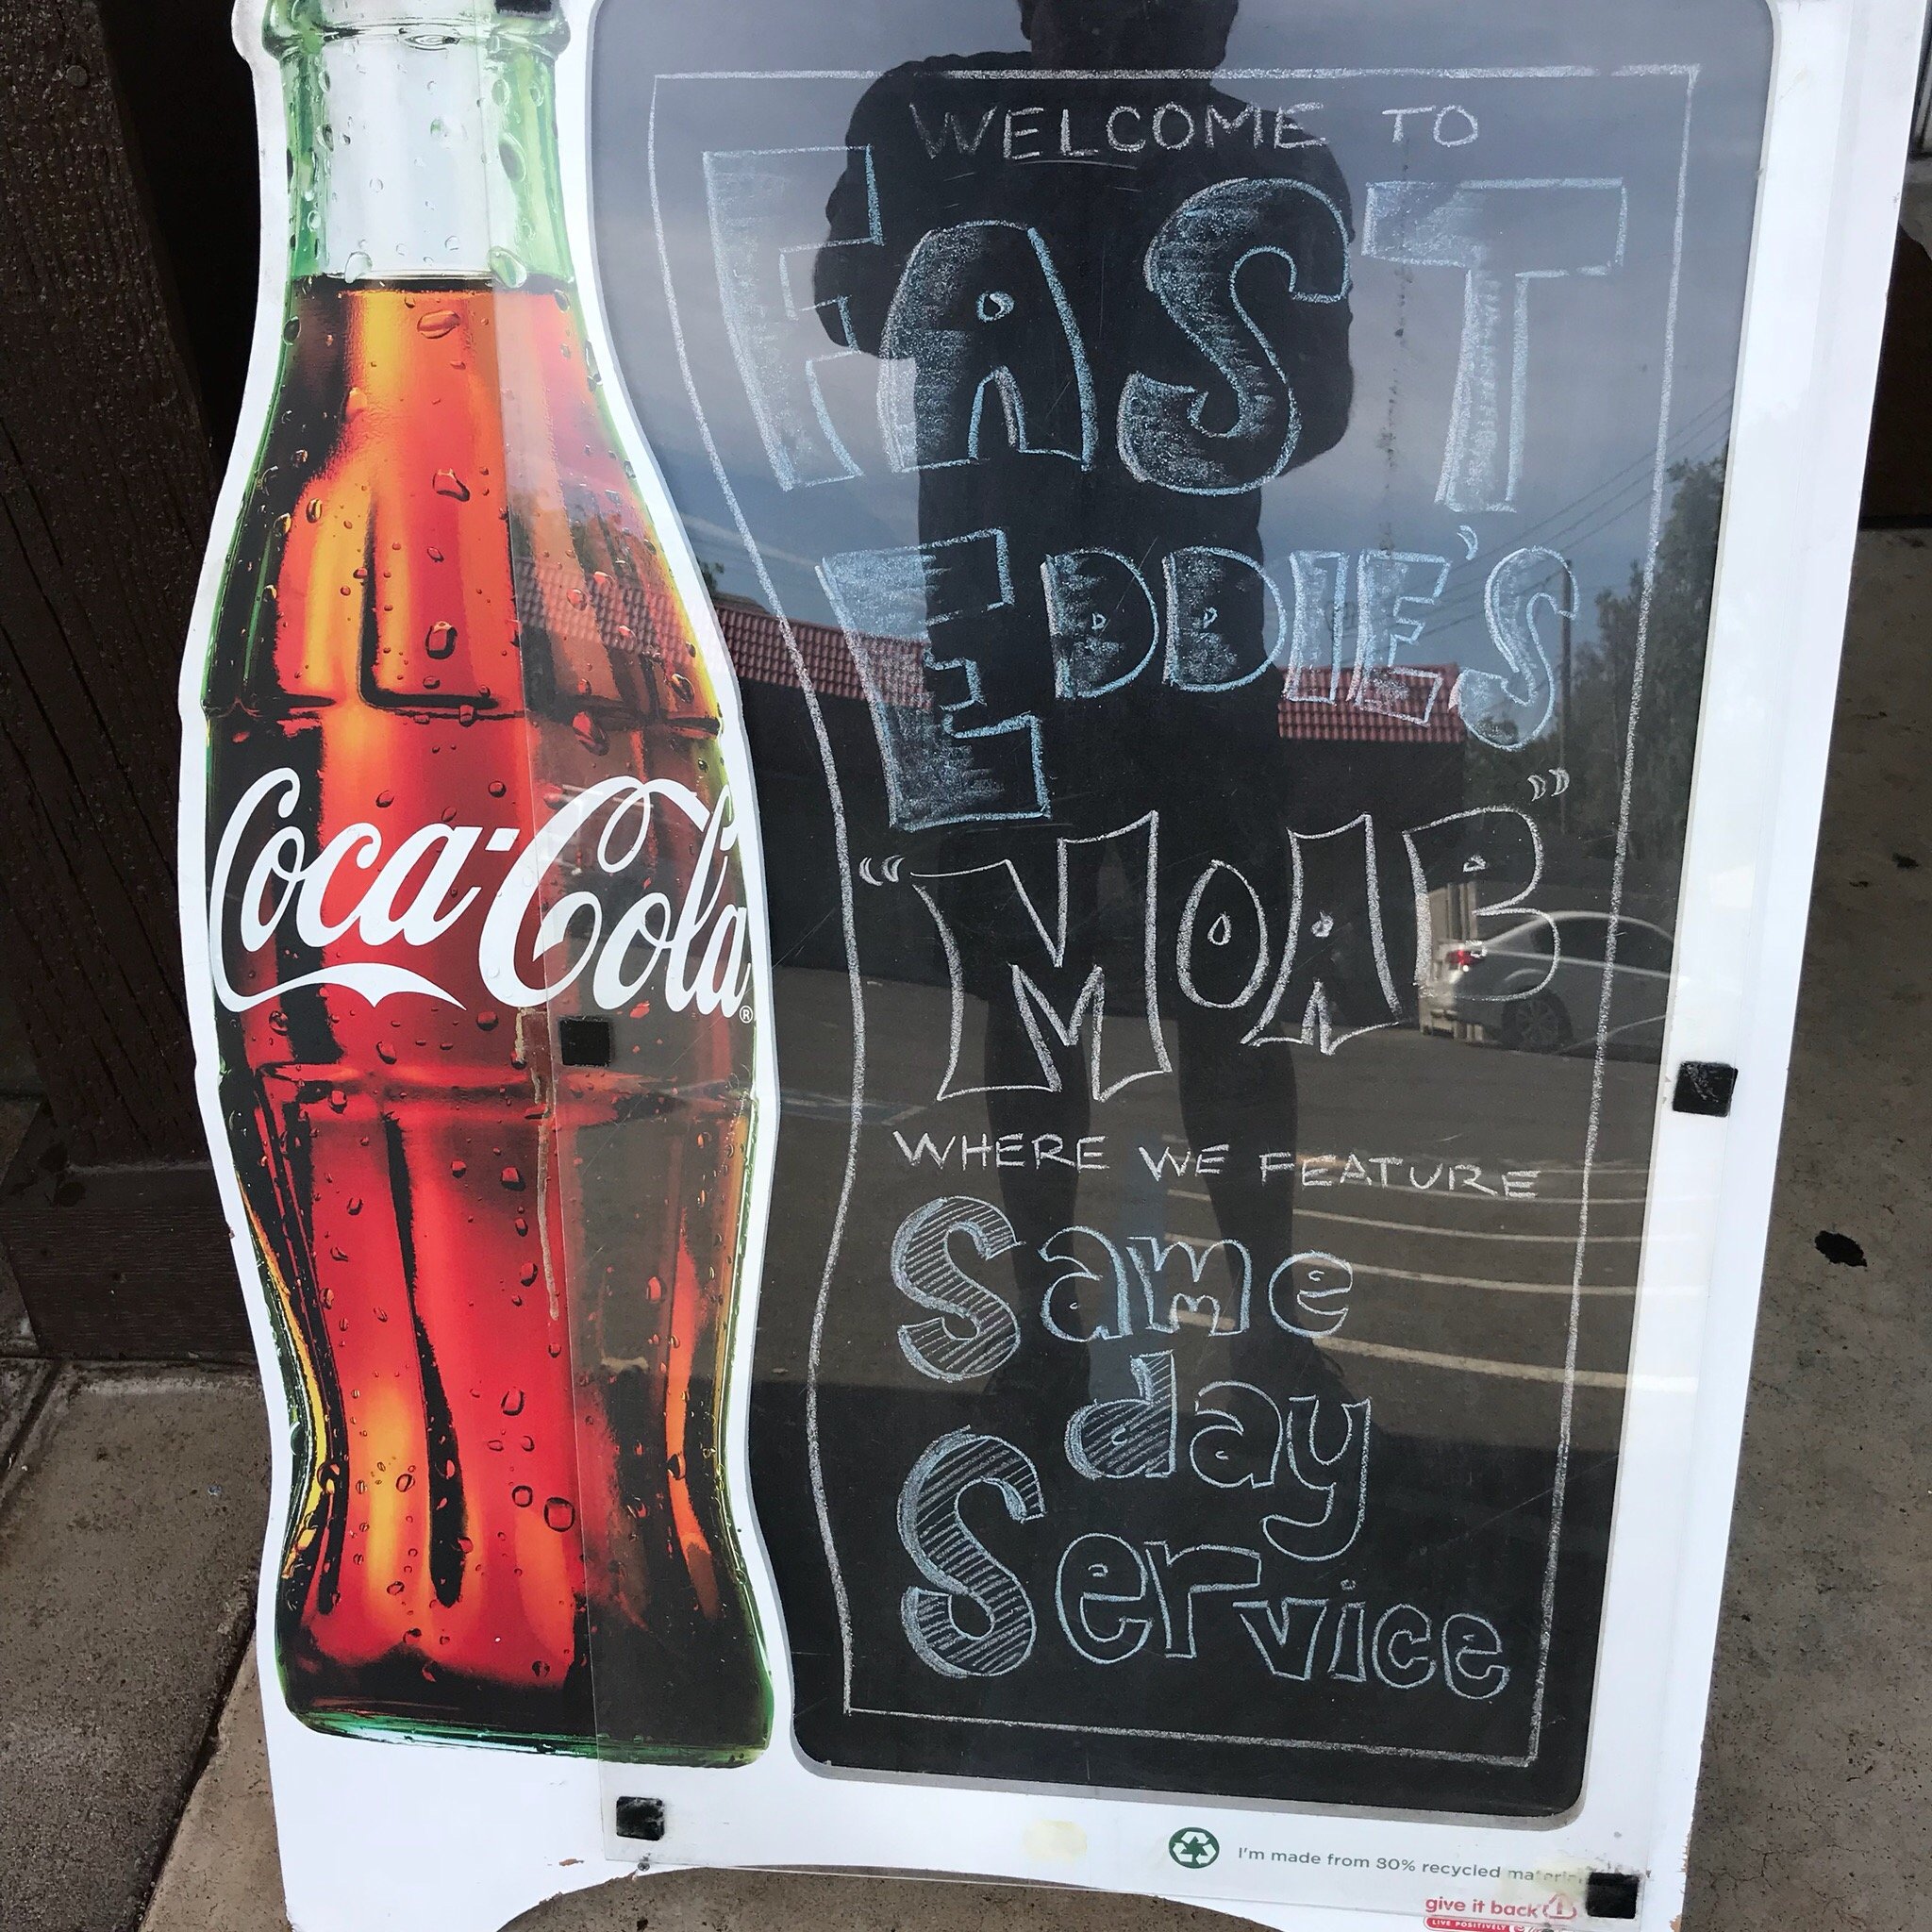 WELCOME TO
FAST
EDDIE'S
"MOAB"
WHERE WE FEATURE
Same
day
Service
Coca-Cola®
I'm made from 80% recycled
give it back
LIVE POSITIVELY